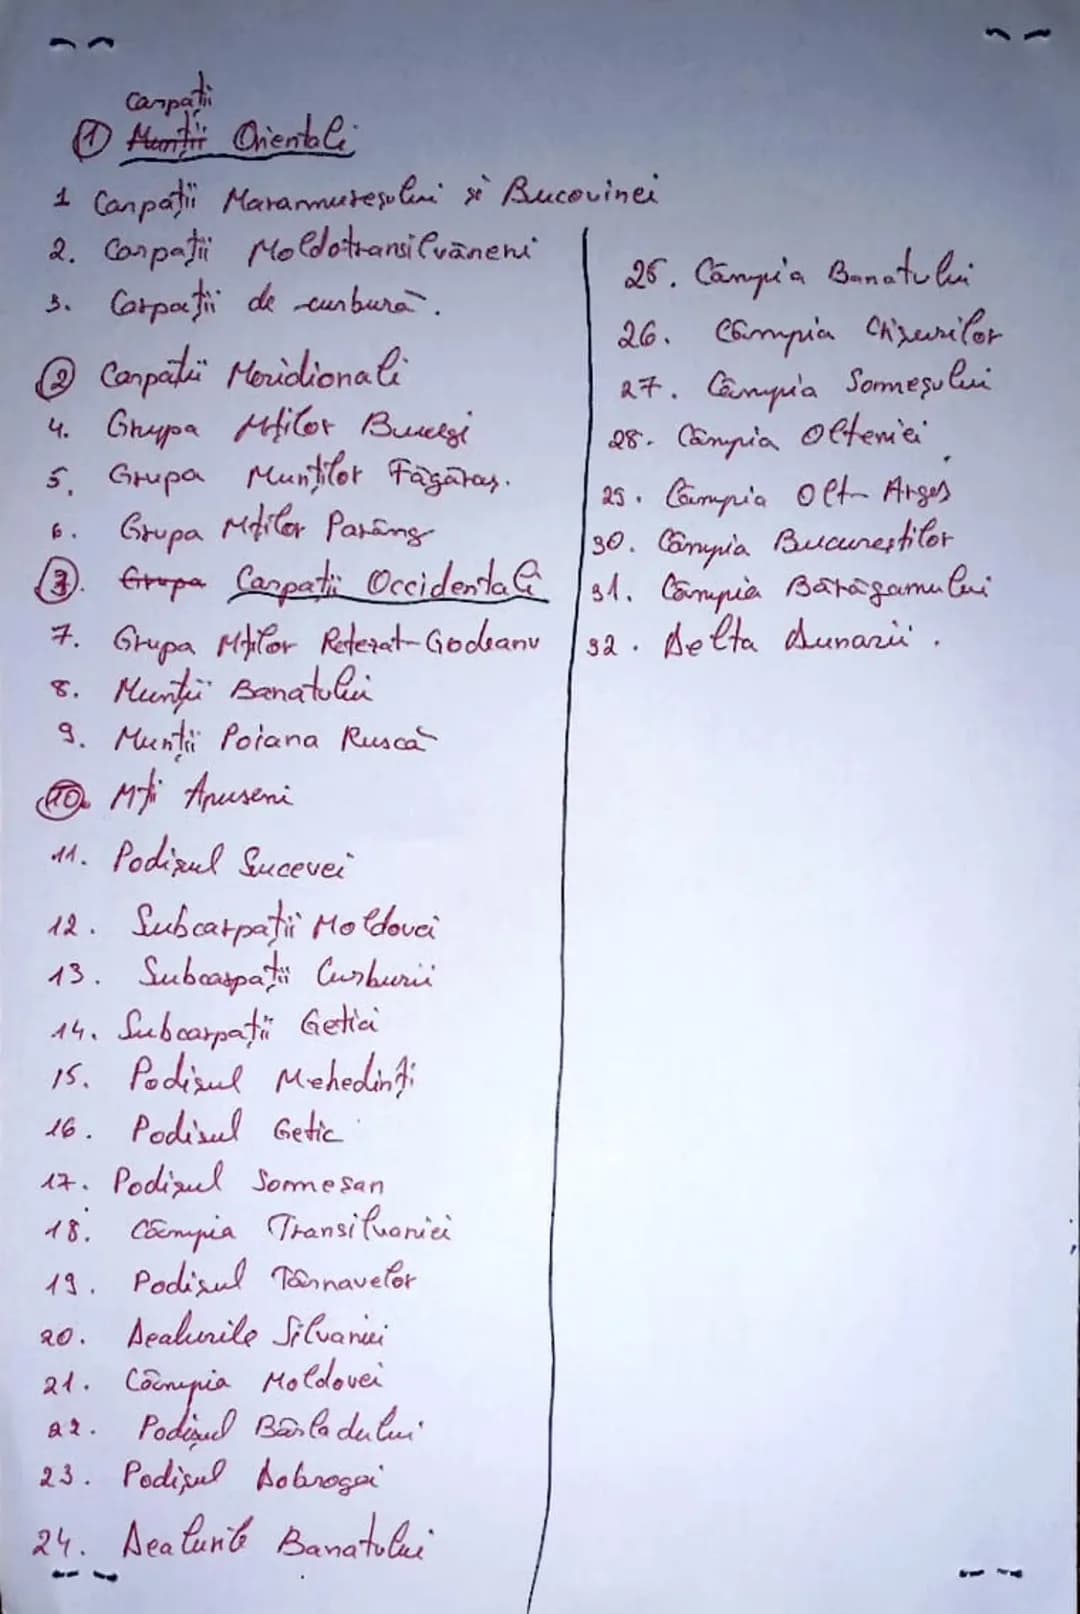 Carpații
① Munții Orientali
1 Carpații Maramureșului și Bucovinei
2. Carpații Moldotransilvăneni
3. Carpații de curbură.
② Carpații Meridionali
4. Grupa Mților Bucegi
5. Grupa Munților Făgăraș.
6. Grupa Mților Parâng
③. Grupa Carpații Occidentali
7. Grupa Mților Retezat-Godeanu
8. Munții Banatului
9. Munții Poiana Ruscă
10. Mți Apuseni
11. Podișul Sucevei
12. Subcarpații Moldovei
13. Subcarpații Curburii
14. Subcarpații Getici
15. Podișul Mehedinți
16. Podisul Getic
17. Podișul Somesan
18. Câmpia Transilvaniei
19. Podișul Târnavelor
20. Dealurile Silvaniei
21. Câmpia Moldovei
22. Podișul Bârladului
23. Podișul Dobrogei
24. Dealurile Banatului
25. Câmpia Banatului
26. Câmpia Crișurilor
27. Câmpia Someșului
28. Câmpia Olteniei
29. Câmpia Olt-Argeș
30. Câmpia Bucureștilor
31. Câmpia Bărăganului
32. Delta Dunarii.